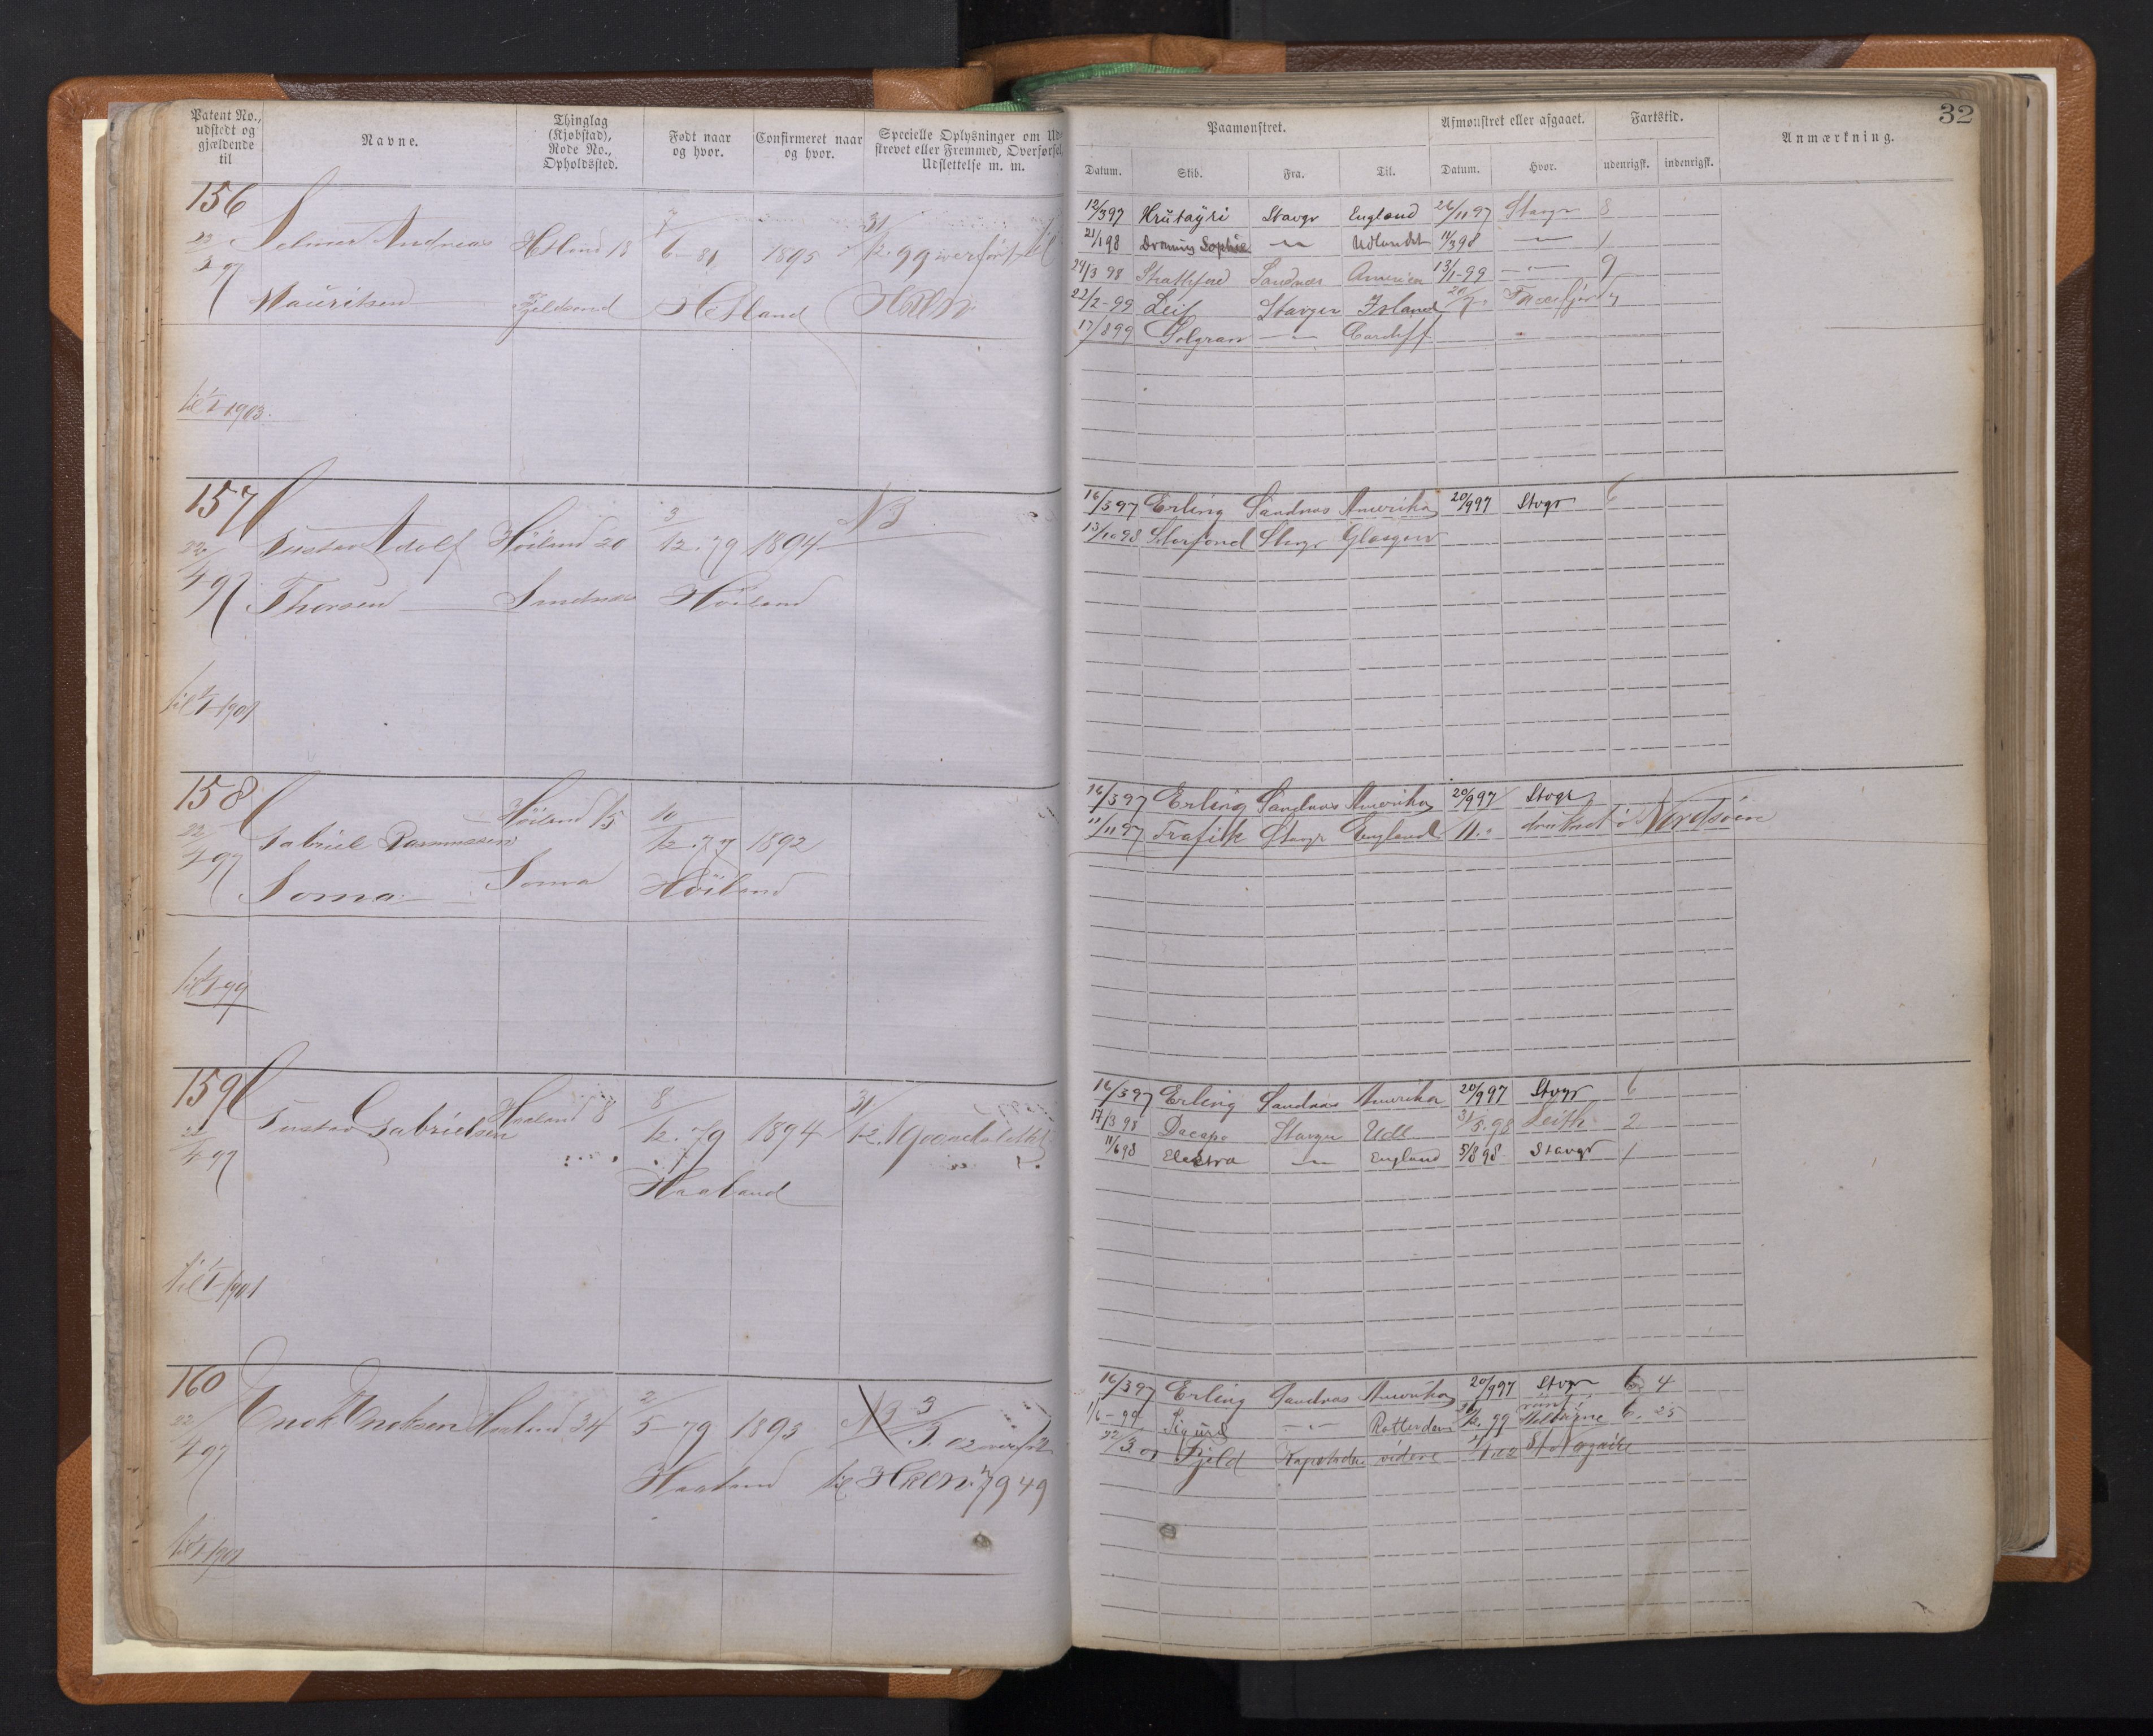 Patent No., udstedt og gjældende til
Navne.
Thinglag (Kjøbstad), Rode No., Opholdssted.
Født naar og hvor.
Confirmeret naar og hvor.
Specielle Oplysninger om Ud-
strevet eller Fremmed, Overførsel,
Udslettelse m. m.
156
Selmer Andreas Hetland 18 7/6-81 1895 31/12.99 overført til
22/3 97
Mauritsen Hetland
til 1/1-1903.
157
Gustav Adolf Höiland 20 3/12.79 1894 N3
22/4 97 Thorsen Sandnæs Höiland
til 1/1-1901
158
Gabriel Rasmussen Höiland 15 10/12.77 1892
22/4 97
Soma Soma Höiland
til 1/1-99
159
Gustav Gabrielsen Haaland 8 8/12.79 1894 31/12.
22/4 97
Haaland
til 1/1-1901
160
Enok Enoksen Haaland 34 2/5-79 1893 N3 3/5.02 overført
22/4 97
Haaland til 7949
til 1/1-1901
32
Paamønstret.
Afmønstret eller afgaaet.
Fartstid.
Anmærkning.
Datum. Skib. Fra. Til. Datum. Hvor. udenrigsk. indenrigsk.
12/3 97 Hrutayri Stavgr England 26/11 97 Stavgr 8
21/1 98 Dronning Sophie — " — Udlandet 11/3 98 — " — 1
24/3 98 Sandnæs America 13/1-99 — " — 9
22/2-99 Leif Stavger Island 20/7
17/8 99 Solgran — " — Cardiff
16/3 97 Erling Sandnæs Amerika 20/9 97 Stvgr 6
13/10 98 Storfond Stavgr Glasgow
16/3 97 Erling Sandnæs Amerika 20/9 97 Stvgr
11/11 97 Trafik Stavgr England 11. druknet i Nordsöen
16/3 97 Erling Sandnæs Amerika 20/9 97 Stvgr 6
17/3 98 Dacapo Stavger Udl 31/5.98 Leith 2
11/6 98 Elektra — " — England 5/8 98 Stavgr 1
16/3 97 Erling Sandnæs Amerika 20/9 97 Stvgr 6 4
1/6-99 Sigurd — " — Rotterdam 99 6. 25
22/3 01 Fjeld videre St Nazaire